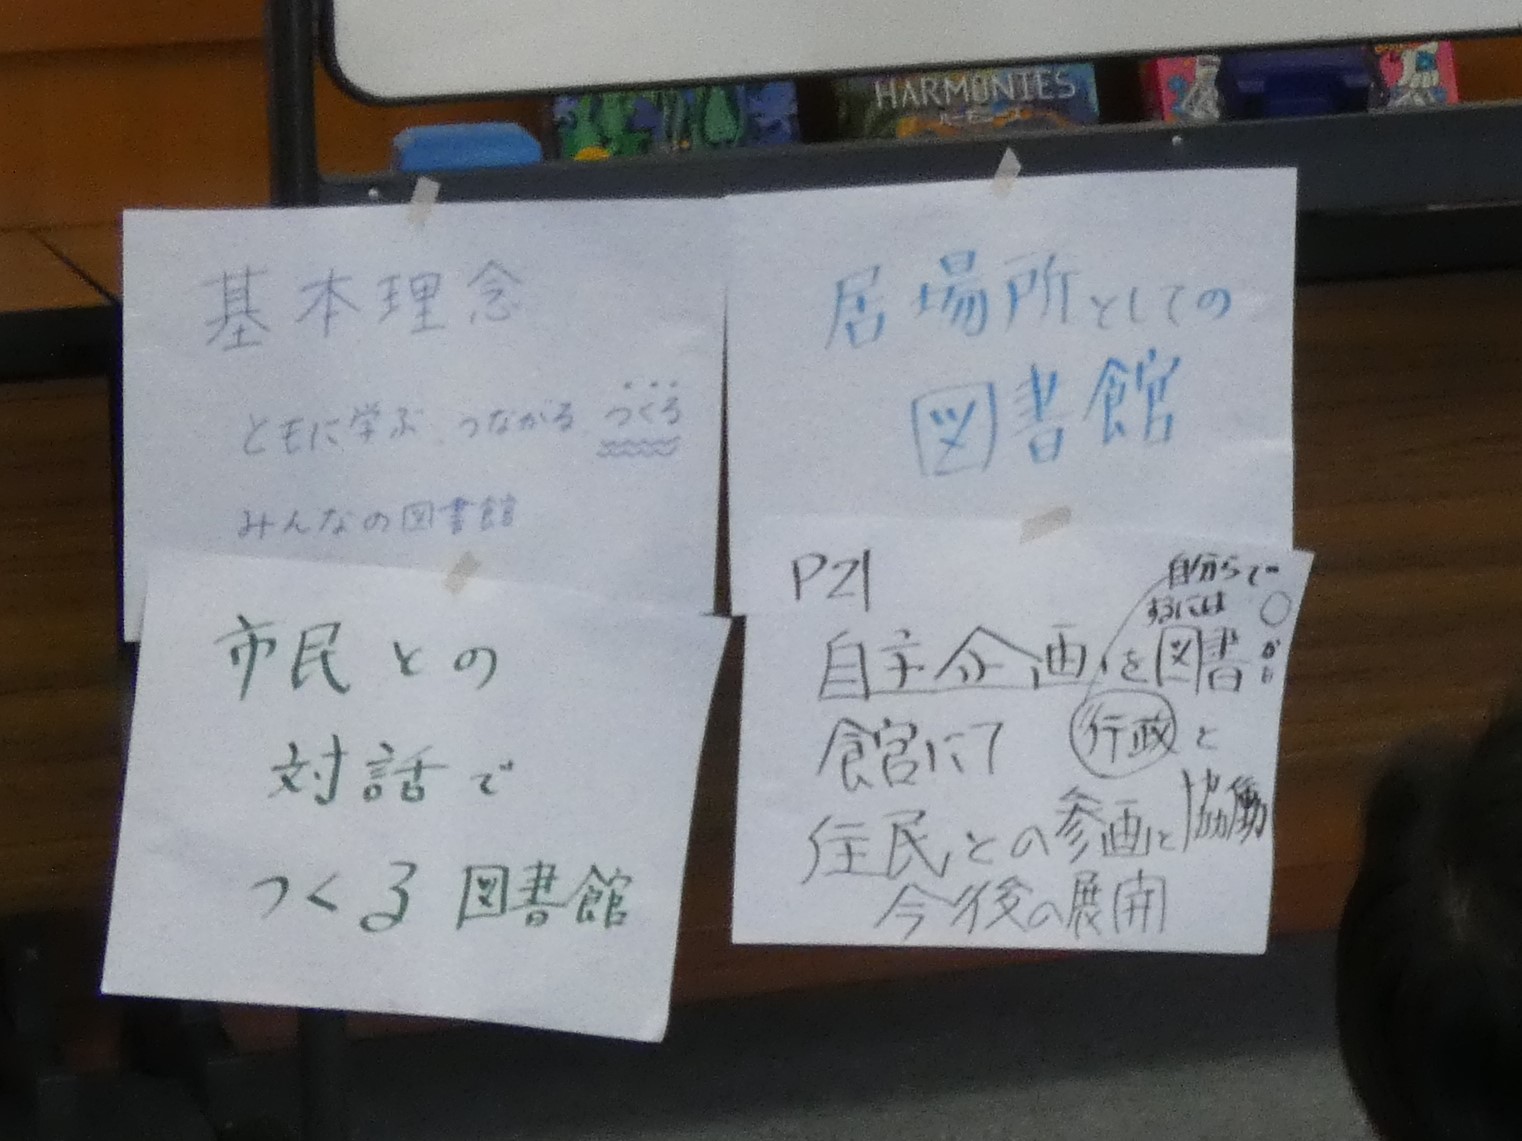 HARMONIES
ハーモニーズ
基本理念
ともに学ぶ つながる つくる
みんなの図書館
居場所としての
図書館
市民との
対話で
つくる図書館
P21
自分らで
するには
自主企画を図書
館にて 行政と
住民との参画と協働
今後の展開